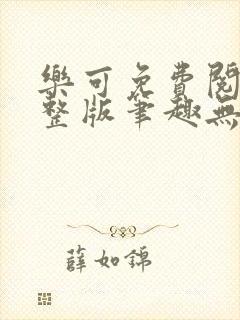 樂可免費閱
整版筆趣無
薛如錦